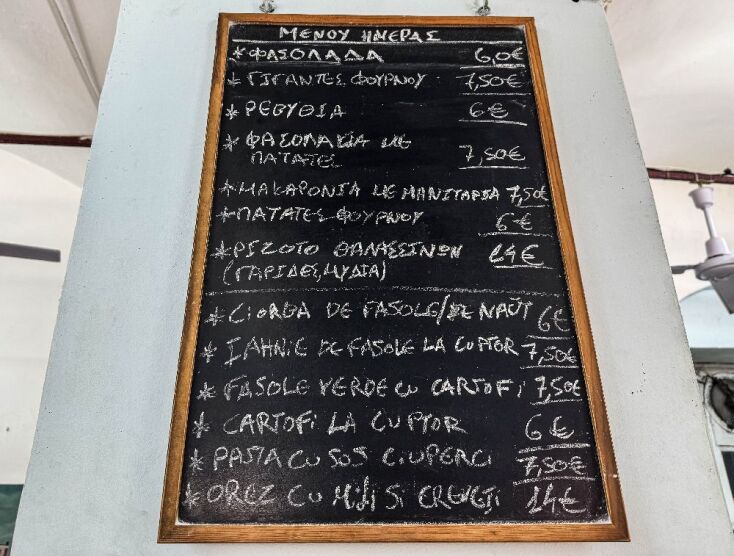 ΜΕΝΟΥ ΗΜΕΡΑΣ
*ΦΑΣΟΛΑΔΑ 6,0€
*ΓΙΓΑΝΤΕΣ ΦΟΥΡΝΟΥ 7,50€
*ΡΕΒΥΘΙΑ 6€
*ΦΑΣΟΛΑΚΙΑ ΜΕ
ΠΑΤΑΤΕΣ 7,50€
*ΜΑΚΑΡΟΝΙΑ ΜΕ ΜΑΝΙΤΑΡΙΑ 7,50€
*ΠΑΤΑΤΕΣ ΦΟΥΡΝΟΥ 6€
*ΡΙΖΟΤΟ ΘΑΛΑΣΣΙΝΩΝ 14€
(ΓΑΡΙΔΕΣ,ΜΥΔΙΑ)
*CIORBA DE FASOLE/DE NAŬT 6€
*IAHNIE DE FASOLE LA CUPTOR 7,50€
*FASOLE VERDE CU CARTOFI 7,50€
*CARTOFI LA CUPTOR 6€
*PASTA CU SOS CIUPERCI 7,50€
*OREZ CU MIDI SI CREVEȚI 14€